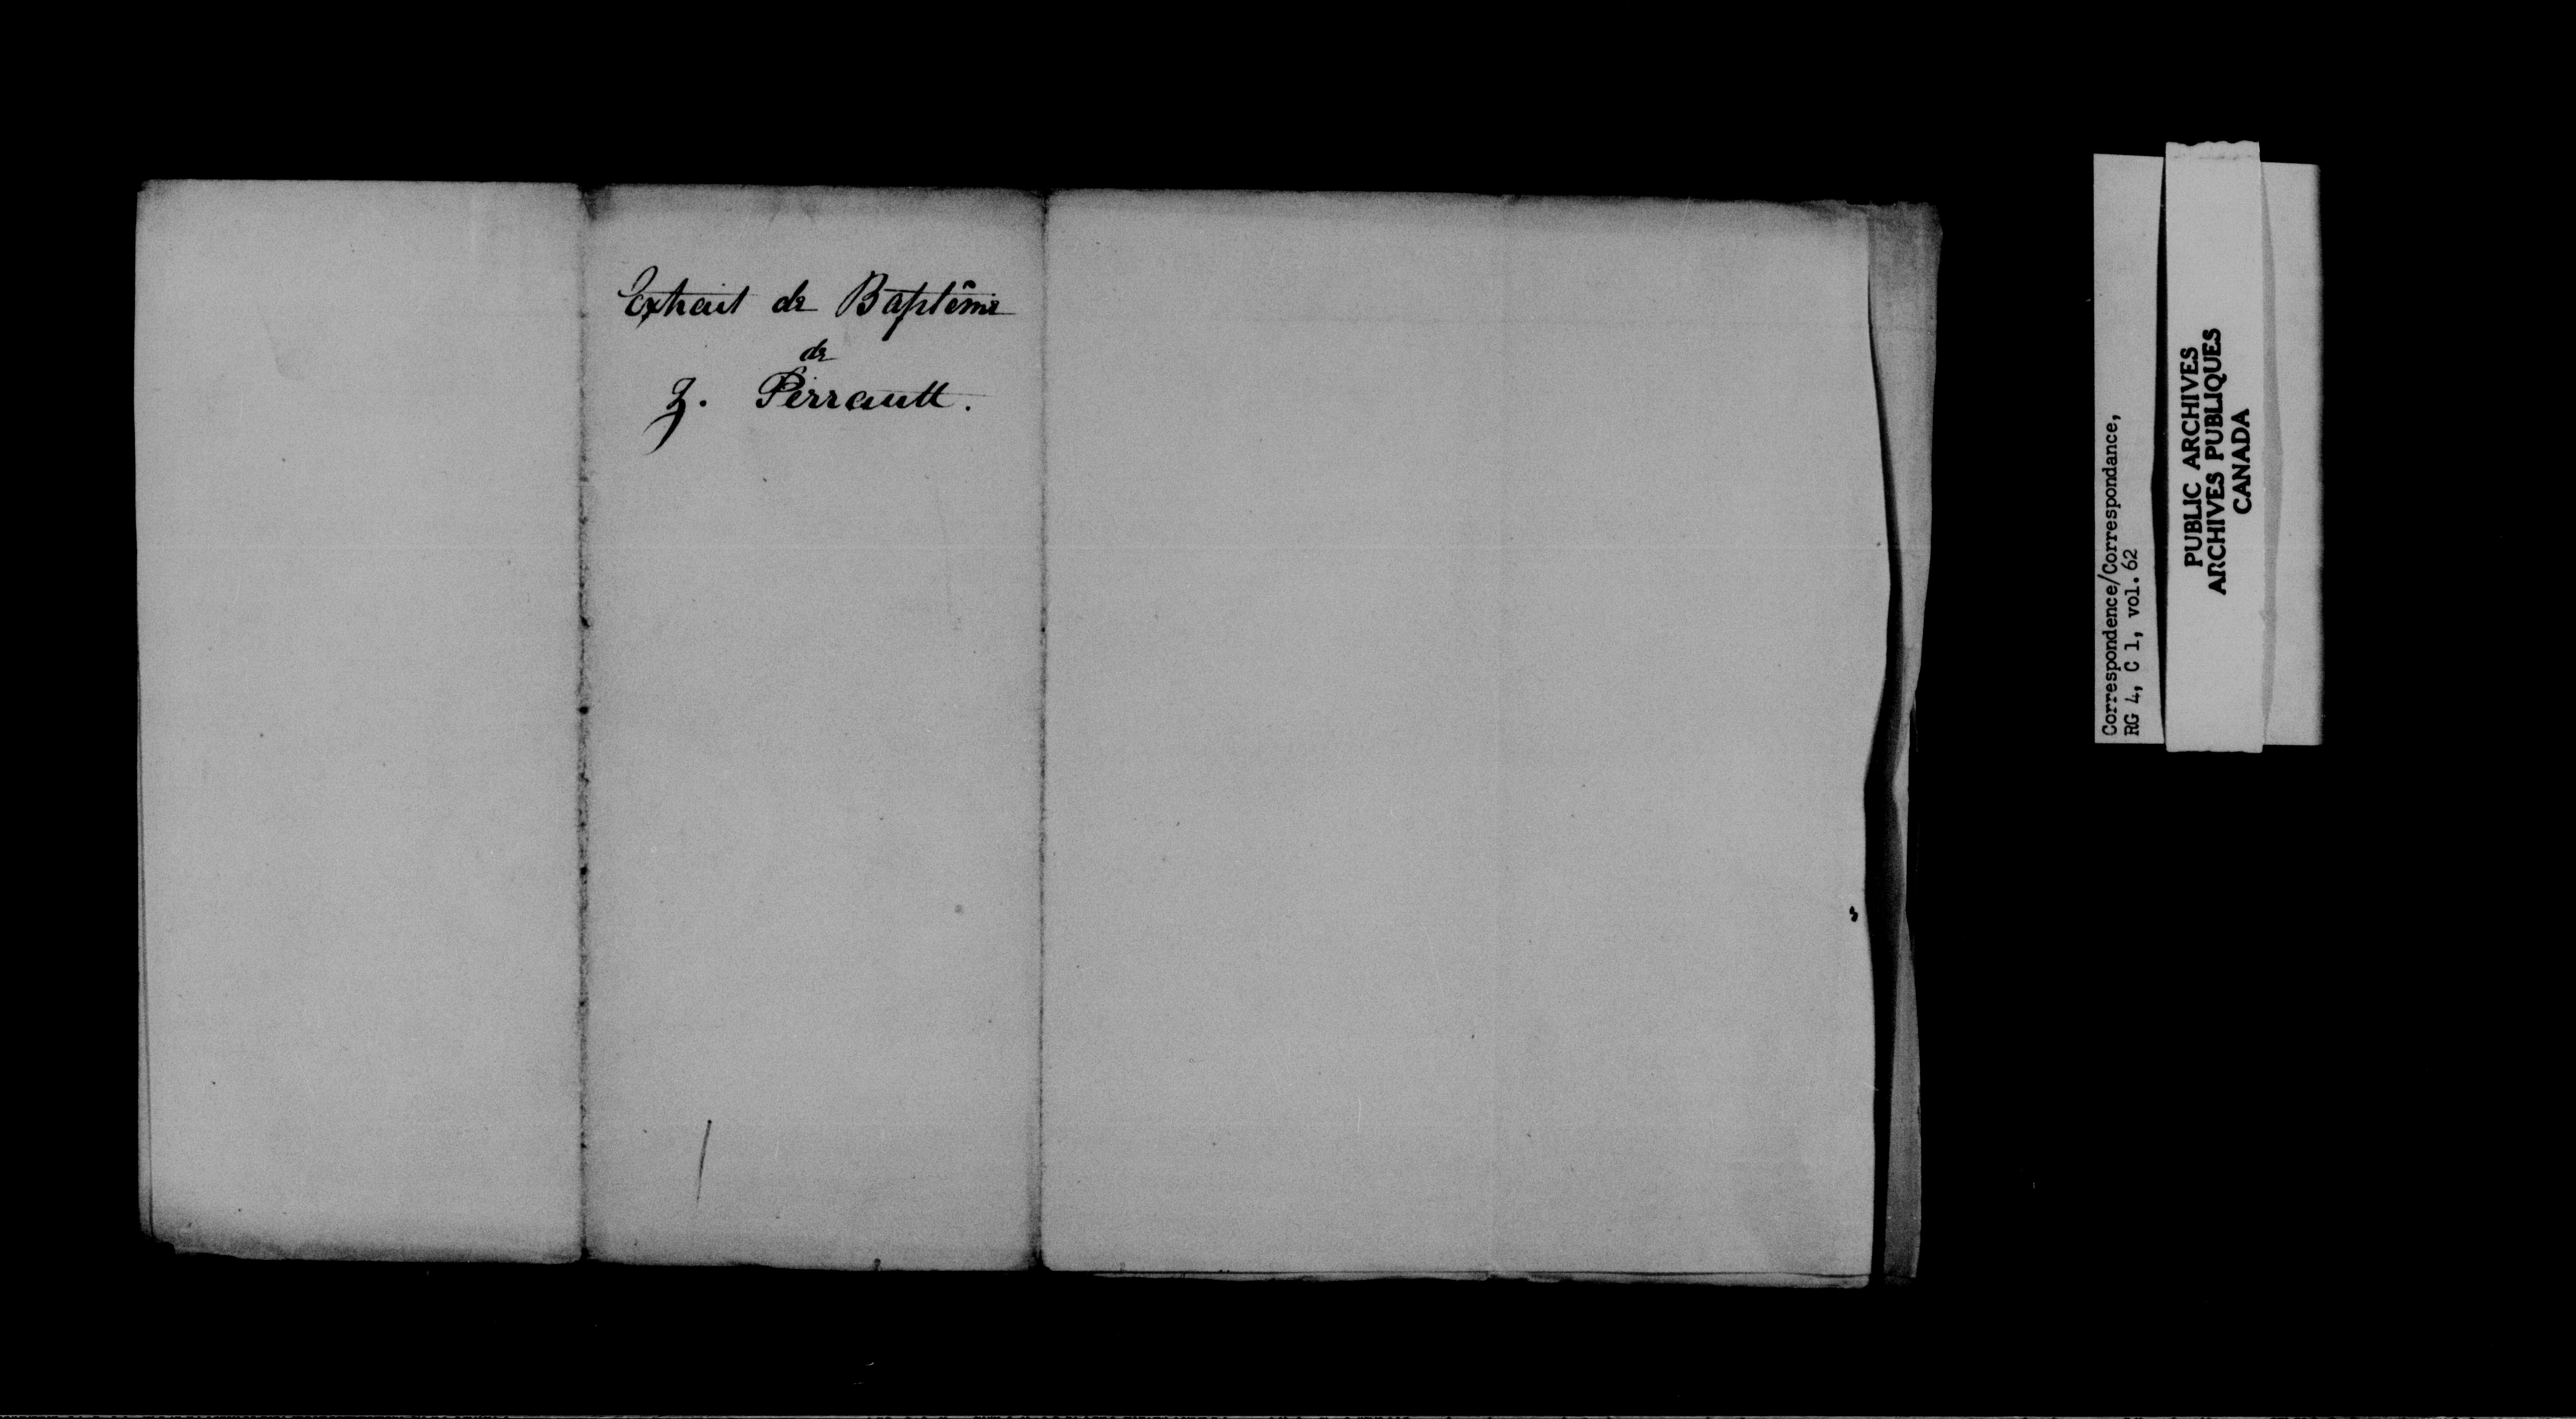 Extrait de Baptême
de
Z. Perrault.
Correspondence/Correspondance,
RG 4, C 1, vol. 62
PUBLIC ARCHIVES
ARCHIVES PUBLIQUES
CANADA